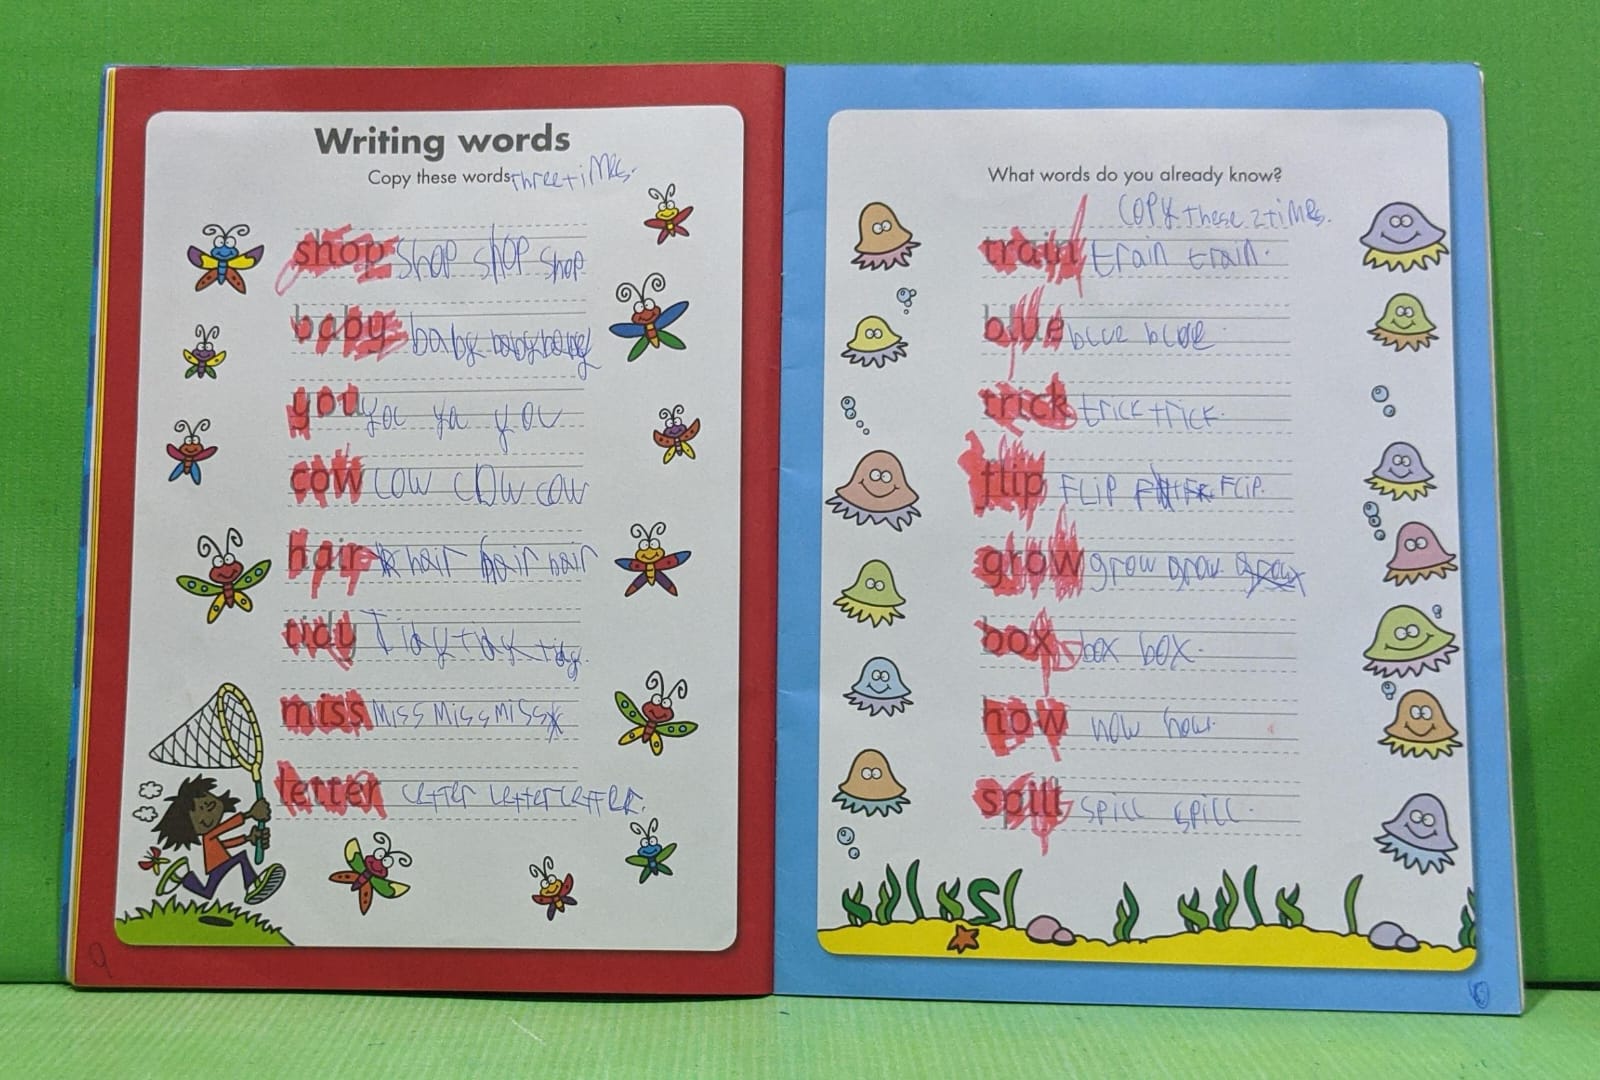 Writing words
Copy these words three times.
shop shop shop shop
baby baby baby baby
you you yu you
cow cow cow cow
hair hair hair hair
tidy Tidy tidy tidy
miss miss miss miss
letter letter letter letter.
9
What words do you already know?
COPY these 2 times.
train train train.
blue blue blue.
trick trick trick.
flip FLiP FLiP.
grow grow grow.
box box box.
how how how.
spill spill spill.